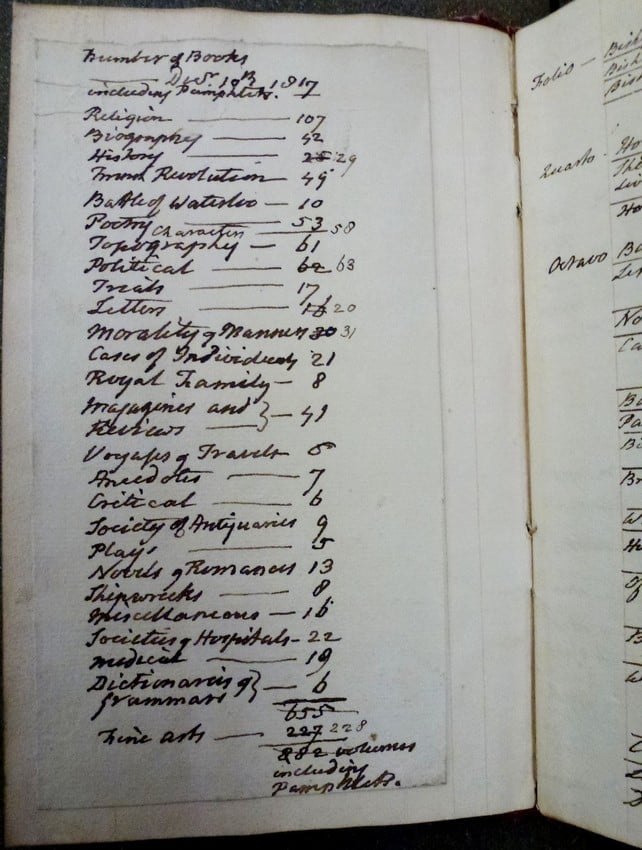 Number of Books
Decr. 10th 1817
including Pamphlets.
Religion — 107
Biography — 42
History — 25 29
French Revolution — 49
Battle of Waterloo — 10
Poetry — 53
Characters — 58
Topography — 61
Political — 62 63
Trials — 17
Letters — 16 20
Morality & Manners 30 31
Cases of Individuals 21
Royal Family — 8
Magazines and } — 41
Reviews —
Voyages & Travels 6
Anecdotes — 7
Critical — 6
Society of Antiquaries 9
Plays — 5
Novels & Romances 13
Shipwrecks — 8
Miscellaneous — 16
Societies & Hospitals — 22
Medical — 19
Dictionaries & } — 6
Grammars
655
Fine arts — 227 228
882 volumes
including
Pamphlets.
Folio —
Quarto.
Octavo